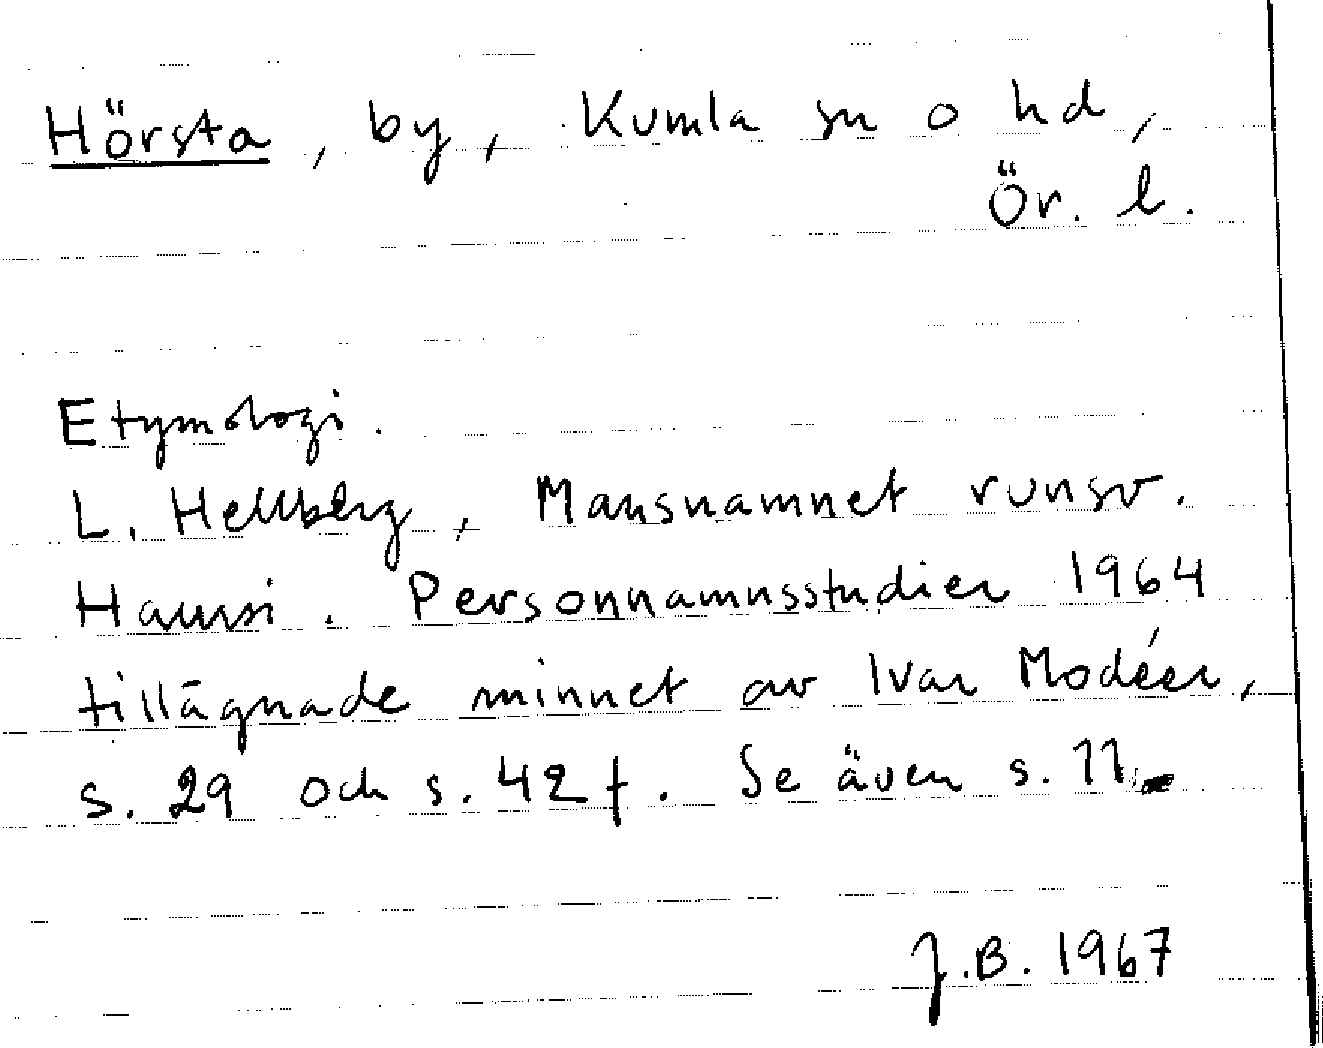 Hörsta, by, Kumla sn o hd,
Ör. l.
Etymologi.
L. Hellberg, Mansnamnet runsv.
Haursi. Personnamnsstudier 1964
tillägnade minnet av Ivar Modéer,
s. 29 och s. 42 f. Se även s. 11.
J.B. 1967